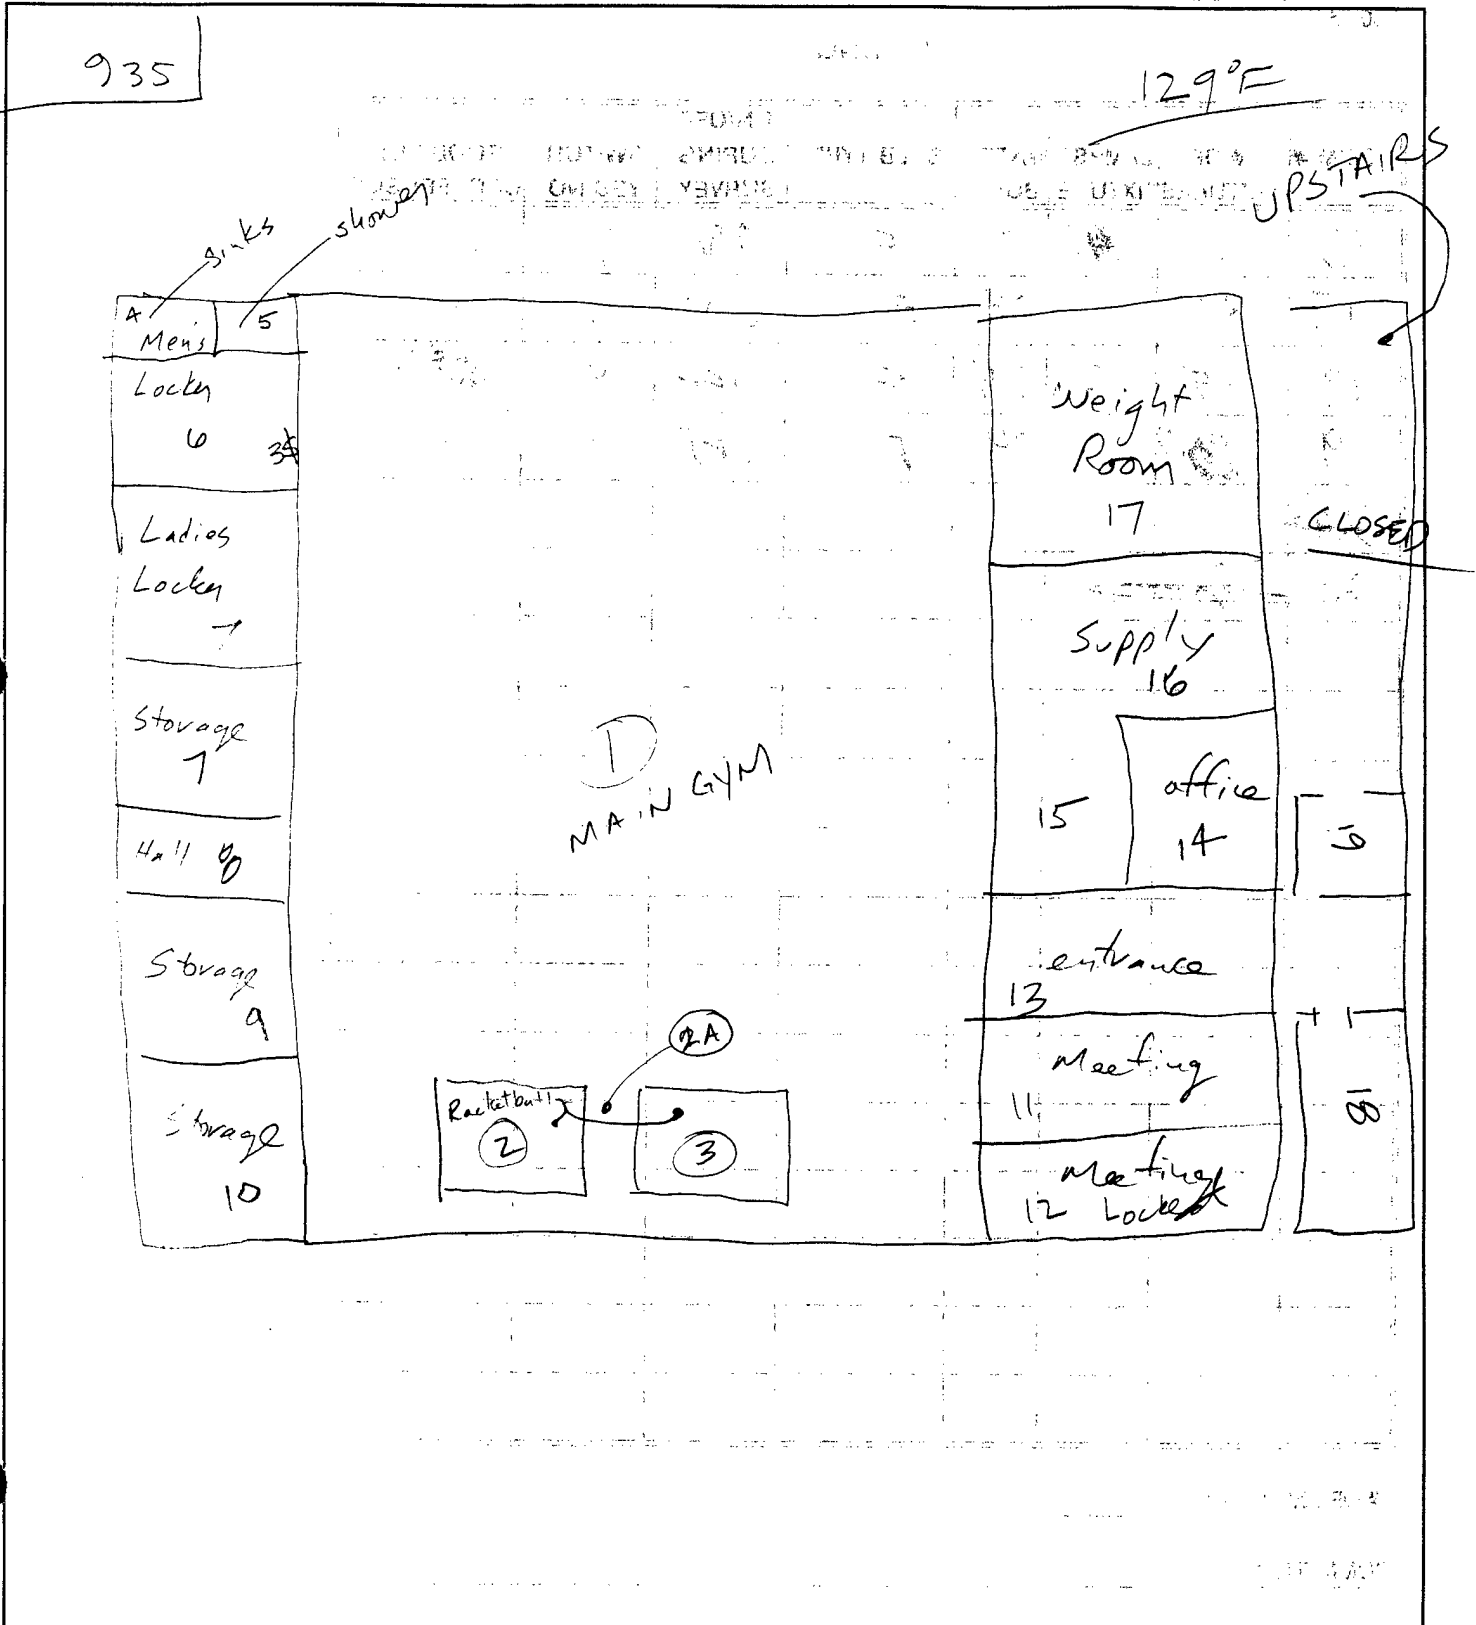 935
129°F
UPSTAIRS
sinks
shower
4
Men's
5
Locker
6
Ladies
Locker
7
Storage
7
Hall 8
Storage
9
Storage
10
1
MAIN GYM
2A
Racketball
2
3
Weight
Room
17
Supply
16
15
office
14
entrance
13
Meeting
11
Meeting
12 Locked
CLOSED
19
18